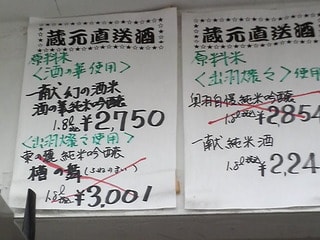 蔵元直送酒
原料米
〈酒の華使用〉
一献 幻の酒米
酒の華純米吟醸
1.8ℓ ¥2750
〈出羽燦々使用〉
純米吟醸
の舞
1.8ℓ ¥3,001
蔵元直送酒
原料米
〈出羽燦々使用〉
奥羽自慢純米吟醸
1.8ℓ ¥2854
一献 純米酒
1.8ℓ ¥2,24